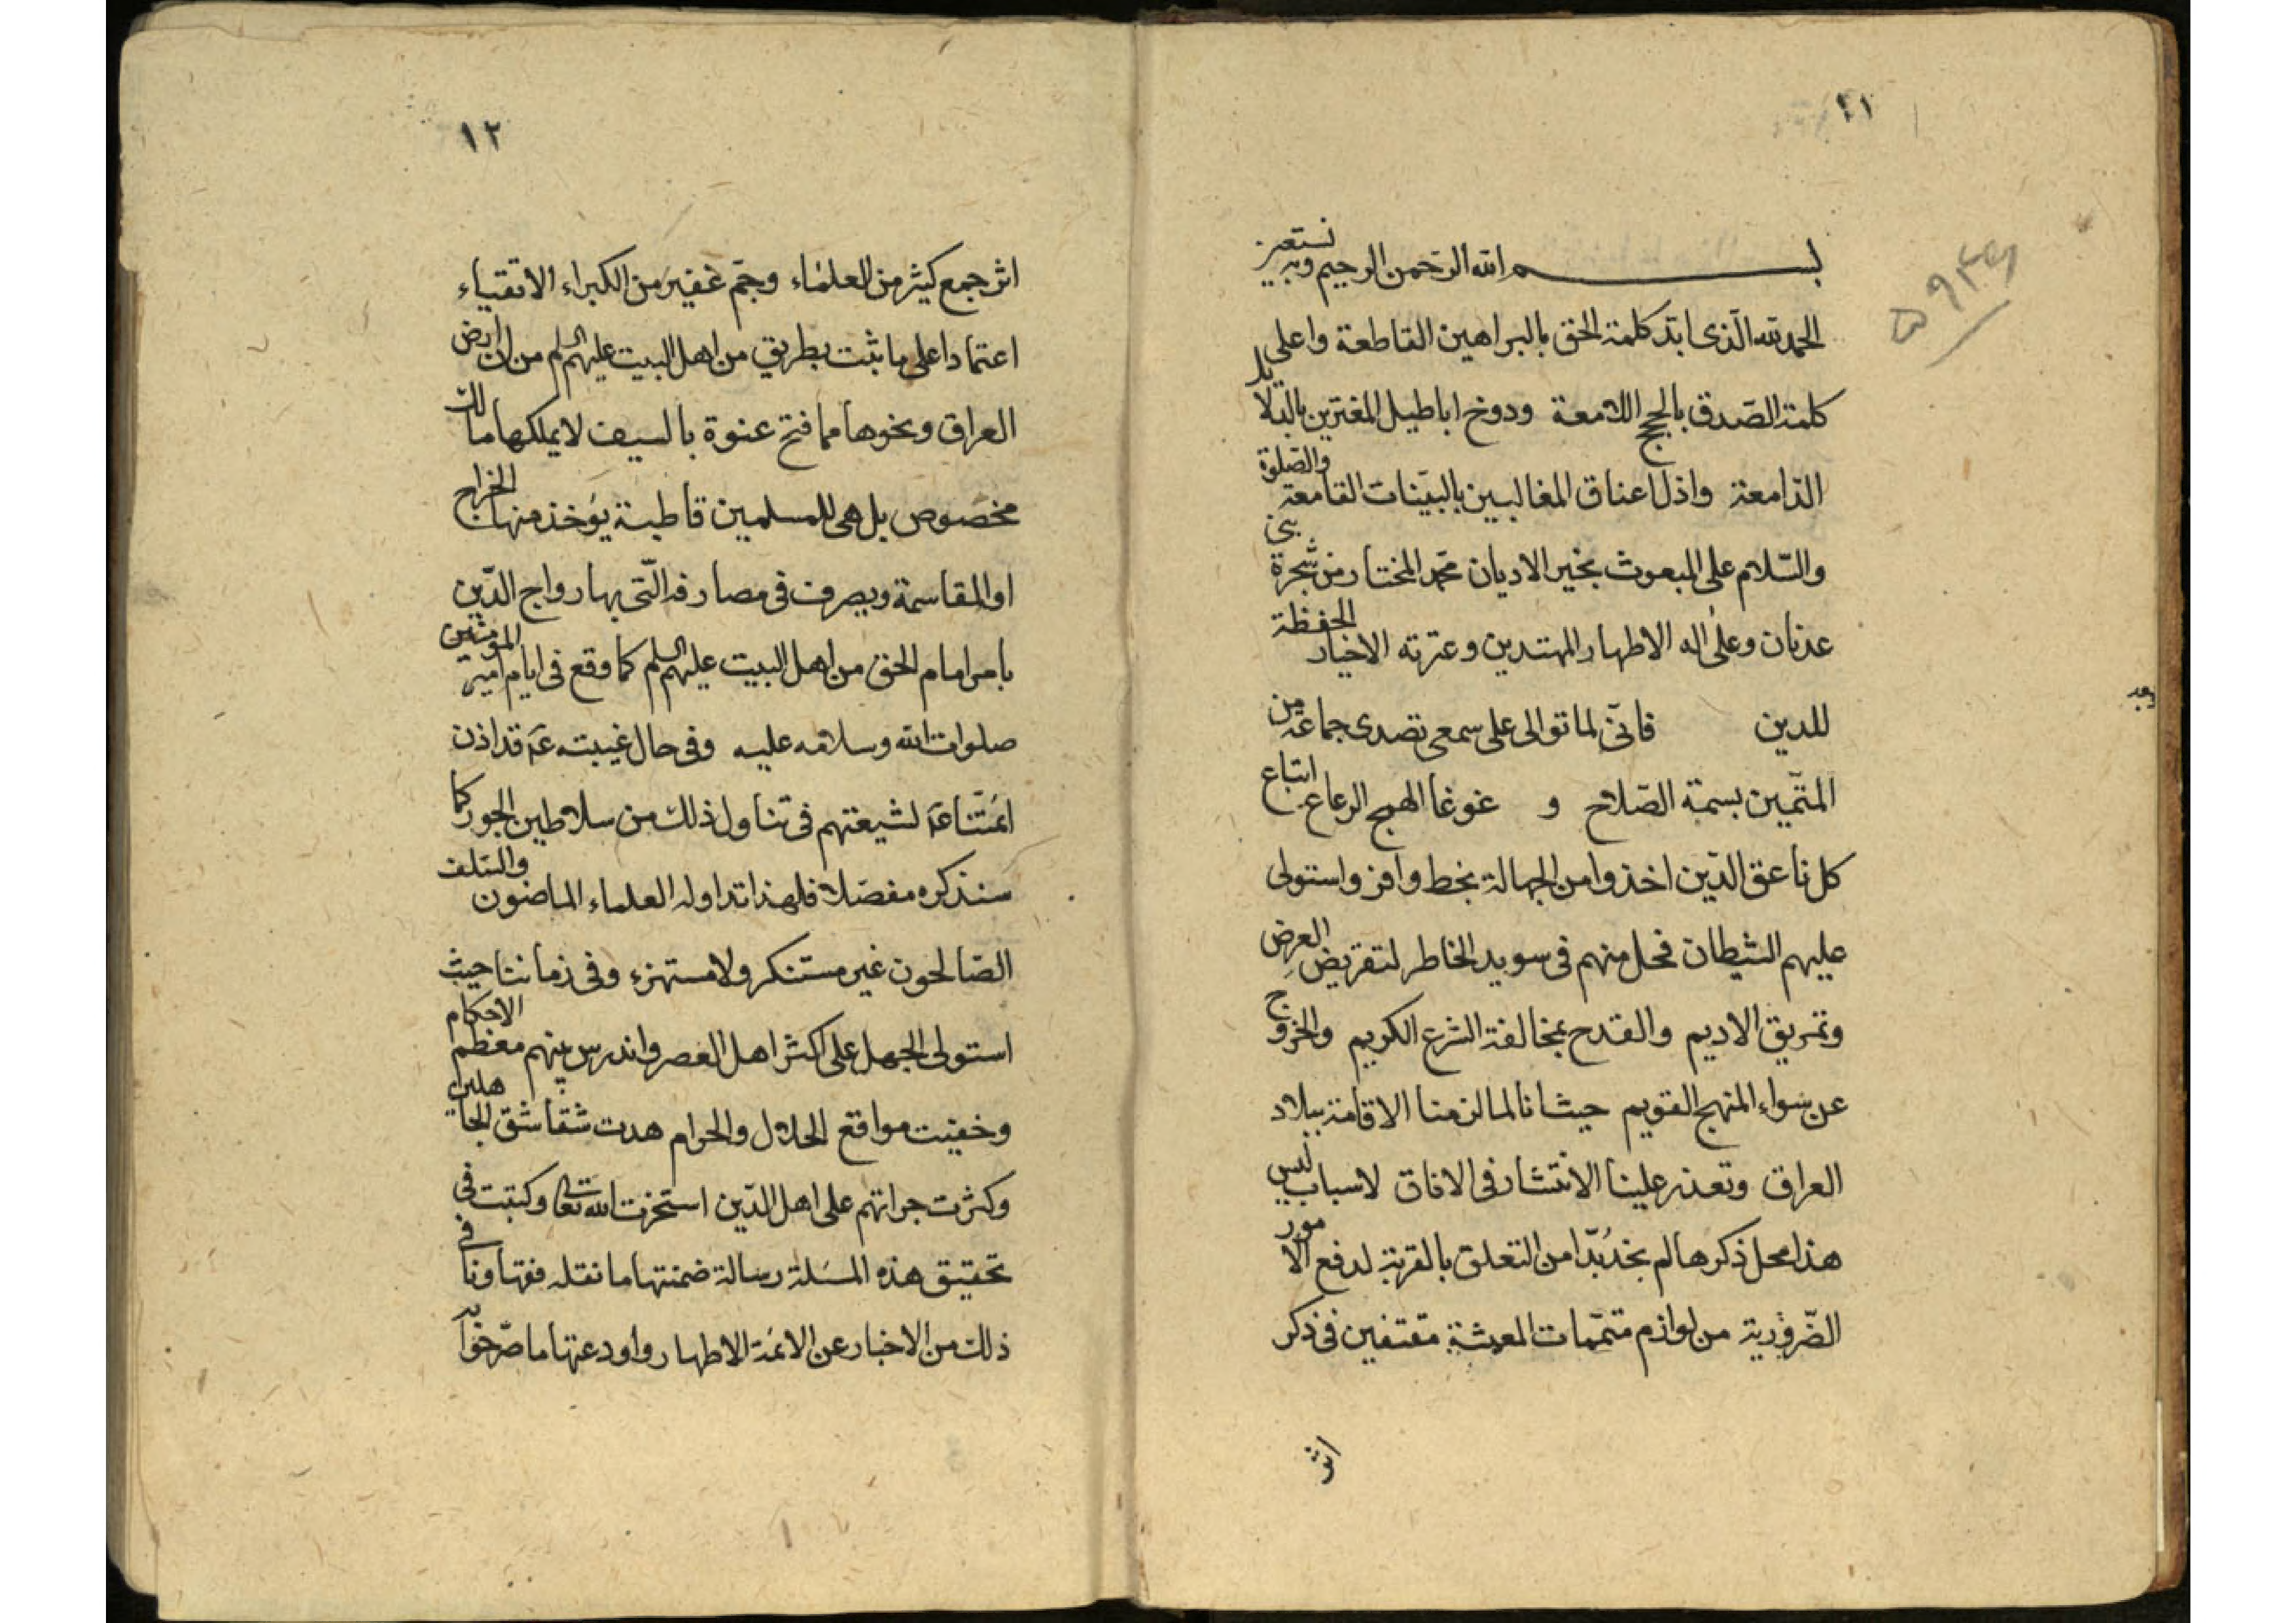 ١١
بسم الله الرحمن الرحيم وبه نستعين
الحمد لله الذى ايد كلمة الحق بالبراهين القاطعة واعلى
كلمة الصدق بالحجج اللامعة ودوخ اباطيل المغترين بالدلايل
الدامغة واذل اعناق المغالبين بالبينات القامعة والصلوة
والسّلام على المبعوث بخير الاديان محمد المختار من شجرة بنى
عدنان وعلى اله الاطهار المهتدين وعترته الاخيار الحفظة
للدين فانّى لما توالى على سمعى تصدى جماعة من
المتّمين بسمة الصّلاح و غوغا الهمج الرعاع اتباع
كل ناعق الذين اخذوا من الجهالة بخط وافر واستولى
عليهم الشيطان فحل منهم فى سويد الخاطر لتقريض العرض
وتمزيق الاديم والقدح بمخالفة الشرع الكريم والخروج
عن سواء المنهج القويم حيث انا لما لزمنا الاقامة ببلاد
العراق وتعذر علينا الانتشار فى الافاق لاسباب ليس
هذا محل ذكرها لم نجد بُدّا من التعلق بالقربة لدفع الامور
الضّرورية من لوازم متمّمات المعيشة مقتفين فى ذكر
اثر
١٢
اثر جمع كثير من العلماء وجمّ غفير من الكبراء الاتقياء
اعتمادا على ما ثبت بطريق من اهل البيت عليهم السلم من ان ارض
العراق ونحوها مما فتح عنوة بالسيف لا يملكها مالك
مخصوص بل هى للمسلمين قاطبة يؤخذ منها الخراج
او المقاسمة ويصرف فى مصارفه الّتى بها رواج الدّين
بامر امام الحق من اهل البيت عليهم السلم كما وقع فى ايام امير المؤمنين
صلوات الله وسلامه عليه وفى حال غيبته عَ قد اذن
ائمّتنا عَ لشيعتهم فى تناول ذلك من سلاطين الجور كما
سنذكره مفصّلا فلهذا تداوله العلماء الماضون والسّلف
الصّالحون غير مستنكر ولا مستهزء وفى زماننا حيث
استولى الجهل على اكثر اهل العصر واندرس بينهم معظم الاحكام
وخفيت مواقع الحلال والحرام هدرت شقاشق الجاهلين
وكثرت جراتهم على اهل الدّين استخرت الله تعالى وكتبت فى
تحقيق هذه المسئلة رسالة ضمنتها ما نقله فقهاونا فى
ذلك من الاخبار عن الائمة الاطهار واودعتها ما صرّحوا به